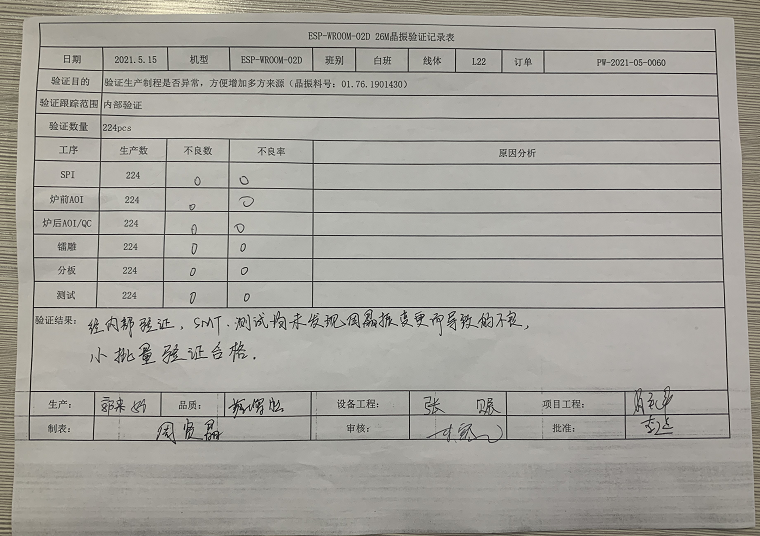 ESP-WROOM-02D 26M晶振验证记录表
日期 2021.5.15 机型 ESP-WROOM-02D 班别 白班 线体 L22 订单 PW-2021-05-0060
验证目的 验证生产制程是否异常，方便增加多方来源（晶振料号：01.76.1901430）
验证跟踪范围 内部验证
验证数量 224pcs
工序 生产数 不良数 不良率 原因分析
SPI 224 0 0
炉前AOI 224 0 0
炉后AOI/QC 224 0 0
镭雕 224 0 0
分板 224 0 0
测试 224 0 0
验证结果： 经内部验证，SMT、测试均未发现因晶振变更而导致的不良，
小批量验证合格。
生产： 品质： 设备工程： 张 项目工程：
制表： 周 晶 审核： 批准：